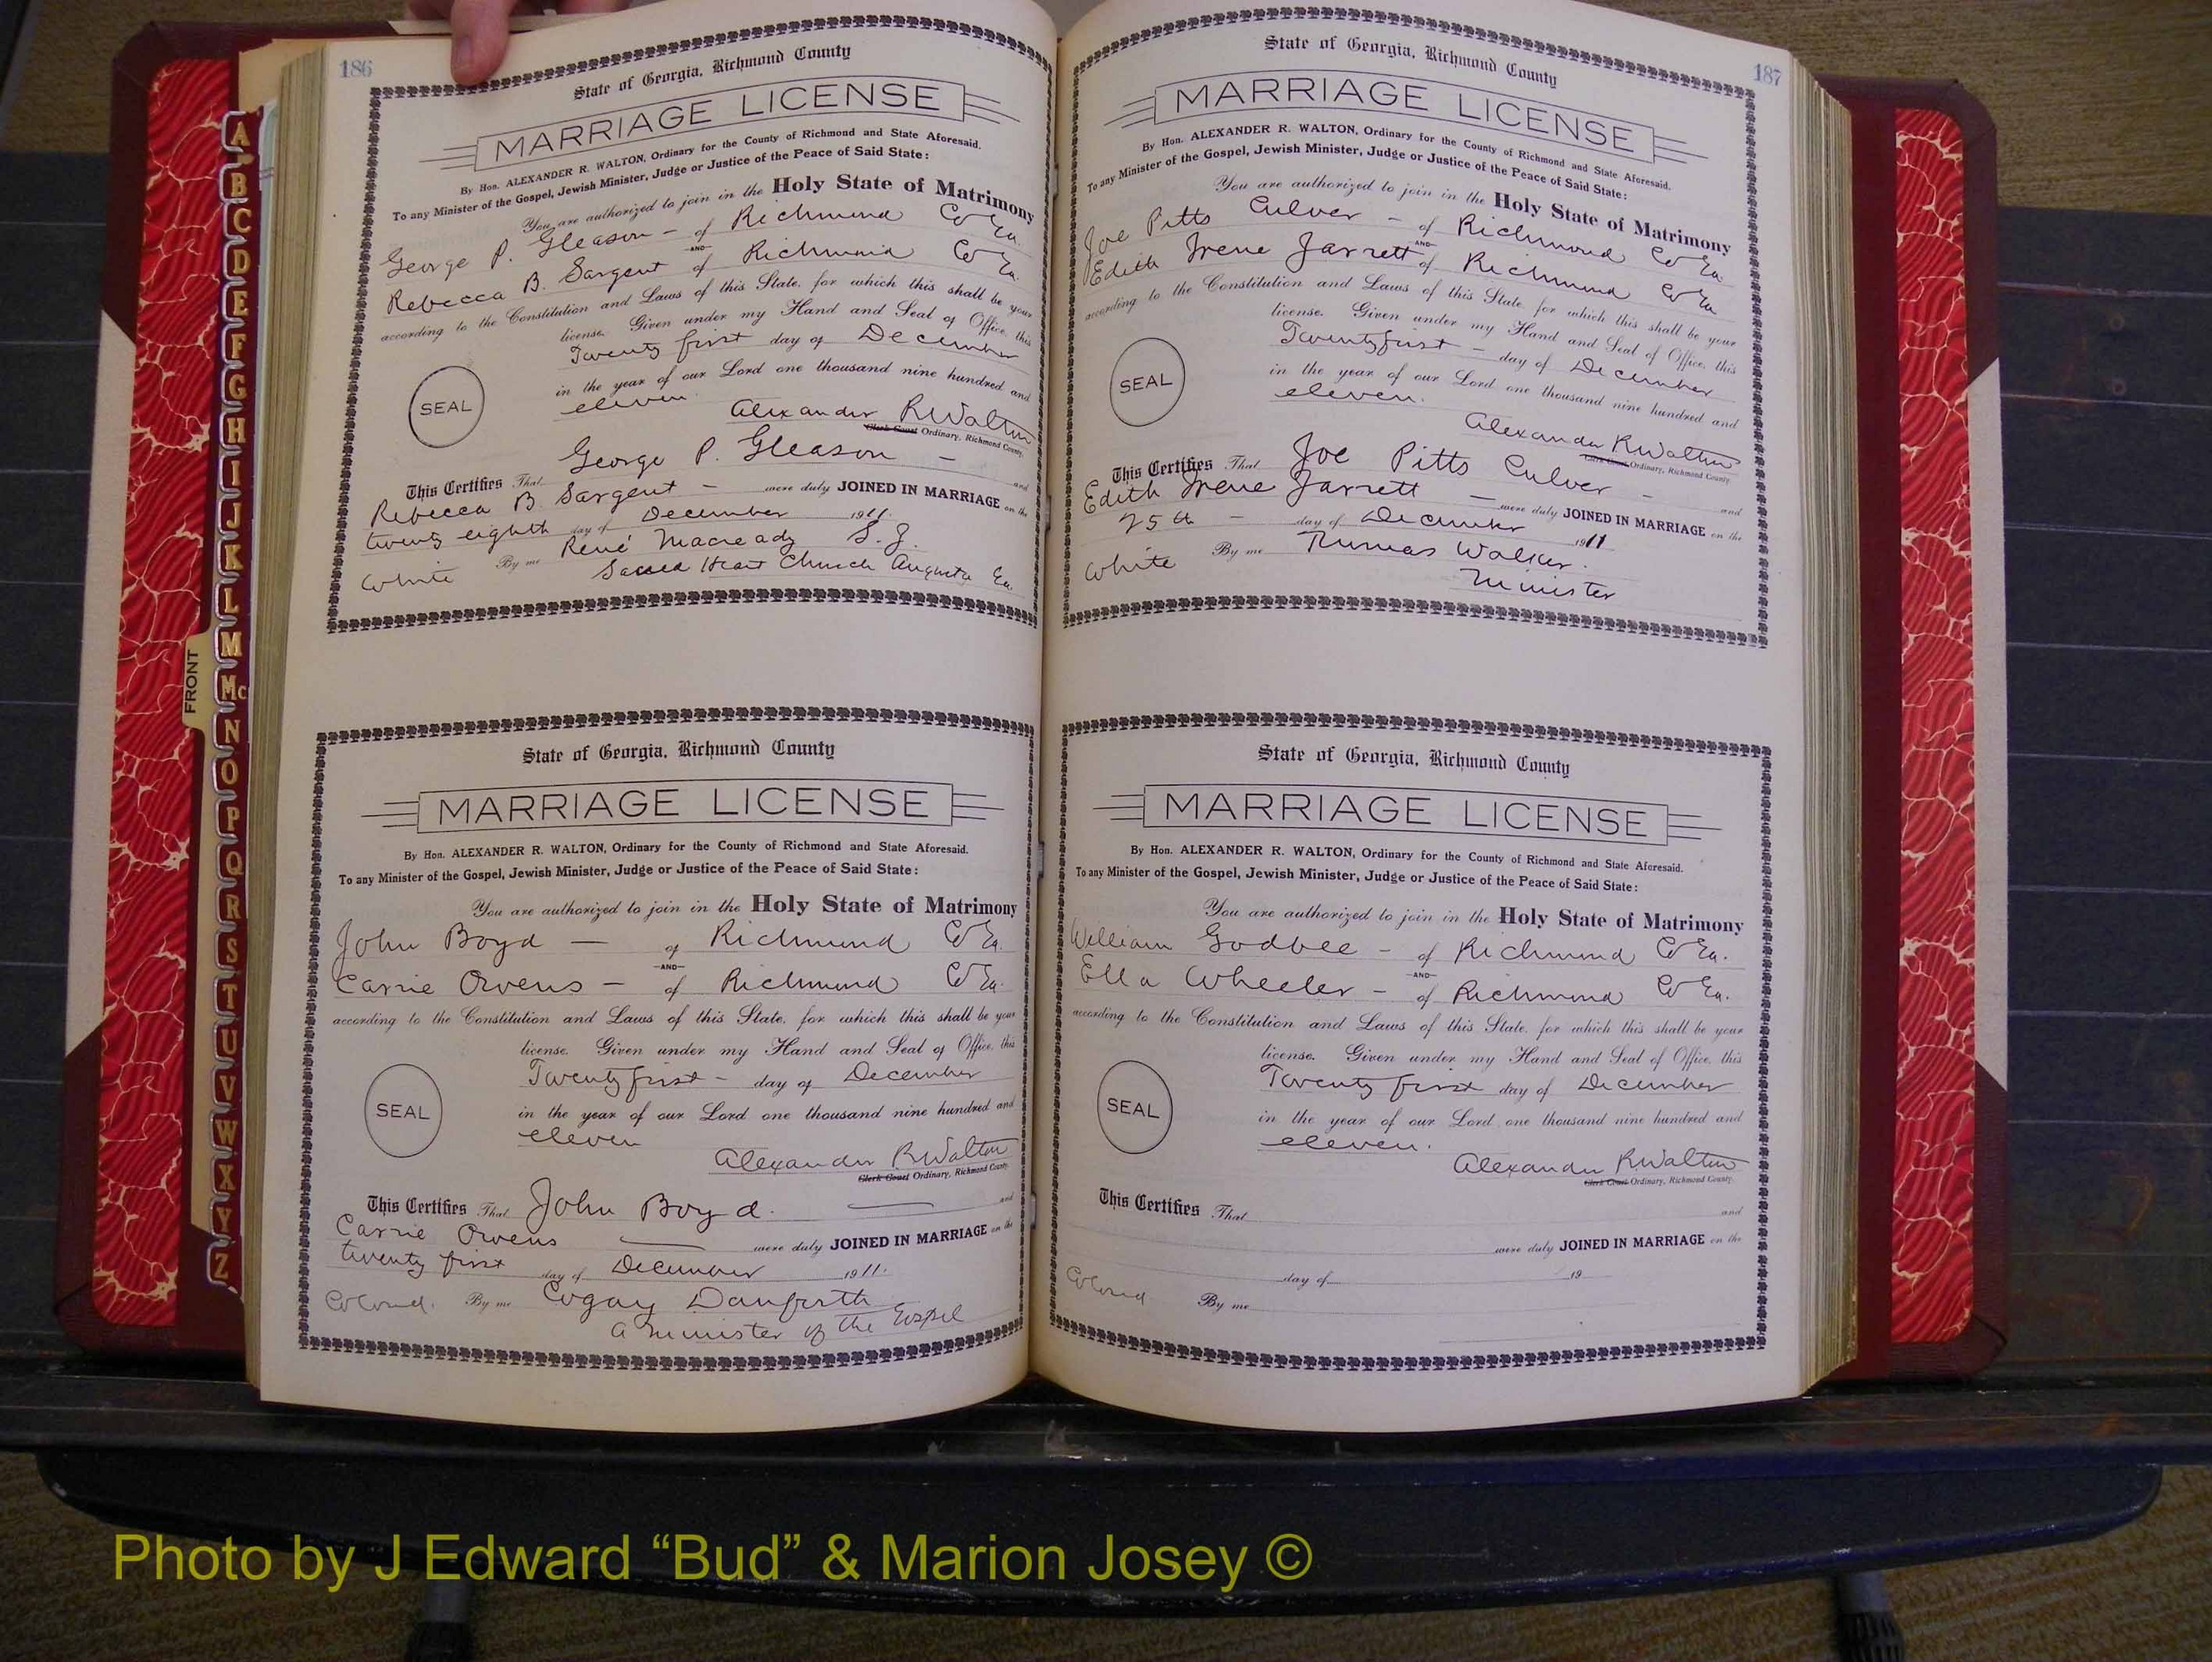 186
State of Georgia, Richmond County
MARRIAGE LICENSE
By Hon. ALEXANDER R. WALTON, Ordinary for the County of Richmond and State Aforesaid.
To any Minister of the Gospel, Jewish Minister, Judge or Justice of the Peace of Said State:
You are authorized to join in the Holy State of Matrimony
George P. Gleason - of Richmond Co Ga.
-AND-
Rebecca B. Sargent of Richmond Co Ga.
according to the Constitution and Laws of this State, for which this shall be your
license. Given under my Hand and Seal of Office, this
Twenty first day of December
in the year of our Lord one thousand nine hundred and
eleven.
SEAL
Alexander R Walton
Clerk Court Ordinary, Richmond County.
This Certifies That George P. Gleason - and
Rebecca B Sargent - were duly JOINED IN MARRIAGE on the
twenty eighth day of December 1911.
White By me René Macready S.J.
Sacred Heart Church Augusta Ga.
State of Georgia, Richmond County
MARRIAGE LICENSE
By Hon. ALEXANDER R. WALTON, Ordinary for the County of Richmond and State Aforesaid.
To any Minister of the Gospel, Jewish Minister, Judge or Justice of the Peace of Said State:
You are authorized to join in the Holy State of Matrimony
John Boyd - of Richmond Co Ga.
-AND-
Carrie Owens - of Richmond Co Ga.
according to the Constitution and Laws of this State, for which this shall be your
license. Given under my Hand and Seal of Office, this
Twenty first - day of December
in the year of our Lord one thousand nine hundred and
eleven
SEAL
Alexander R Walton
Clerk Court Ordinary, Richmond County.
This Certifies That John Boyd. and
Carrie Owens were duly JOINED IN MARRIAGE on the
twenty first day of December 1911.
Colored. By me Cogay Danforth
a Minister of the Gospel
187
State of Georgia, Richmond County
MARRIAGE LICENSE
By Hon. ALEXANDER R. WALTON, Ordinary for the County of Richmond and State Aforesaid.
To any Minister of the Gospel, Jewish Minister, Judge or Justice of the Peace of Said State:
You are authorized to join in the Holy State of Matrimony
Joe Pitts Culver - of Richmond Co Ga.
-AND-
Edith Irene Jarrett of Richmond Co Ga
according to the Constitution and Laws of this State, for which this shall be your
license. Given under my Hand and Seal of Office, this
Twenty first - day of December
in the year of our Lord one thousand nine hundred and
eleven.
SEAL
Alexander R Walton
Clerk Court Ordinary, Richmond County.
This Certifies That Joe Pitts Culver - and
Edith Irene Jarrett - were duly JOINED IN MARRIAGE on the
25th - day of December 1911
White By me Thomas Walker.
Minister
State of Georgia, Richmond County
MARRIAGE LICENSE
By Hon. ALEXANDER R. WALTON, Ordinary for the County of Richmond and State Aforesaid.
To any Minister of the Gospel, Jewish Minister, Judge or Justice of the Peace of Said State:
You are authorized to join in the Holy State of Matrimony
William Godbee - of Richmond Co Ga.
-AND-
Ella Wheeler - of Richmond Co Ga.
according to the Constitution and Laws of this State, for which this shall be your
license. Given under my Hand and Seal of Office, this
Twenty first day of December
in the year of our Lord one thousand nine hundred and
eleven.
SEAL
Alexander R Walton
Clerk Court Ordinary, Richmond County.
This Certifies That and
were duly JOINED IN MARRIAGE on the
day of 19
Colored By me
FRONT
A
B
C
D
E
F
G
H
I
J
K
L
M
Mc
N
O
P
Q
R
S
T
U
V
W
X
Y
Z
Photo by J Edward “Bud” & Marion Josey ©